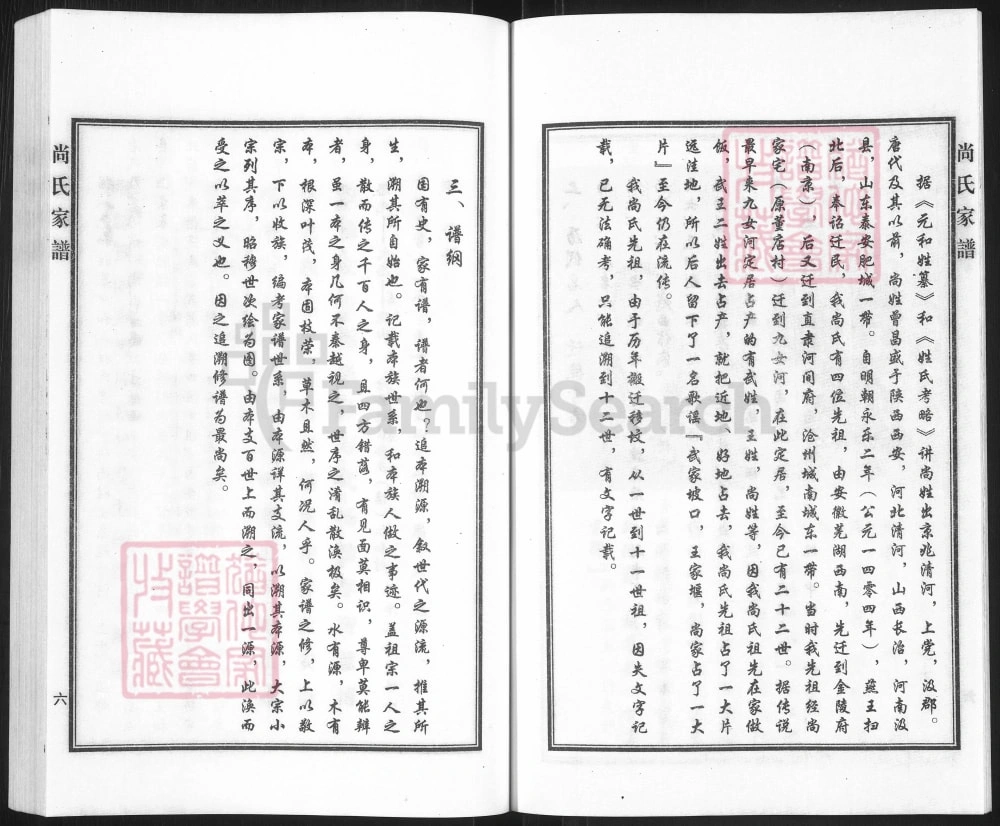 尚氏家譜
据《元和姓纂》和《姓氏考略》讲尚姓出京兆清河，上党，汲郡。
唐代及其以前，尚姓曾昌盛于陕西西安，河北清河，山西长治，河南汲
县，山东泰安肥城一带。自明朝永乐二年（公元一四零四年），燕王扫
北后，奉诏迁民，我尚氏有四位先祖，由安徽芜湖西南，先迁到金陵府
（南京），后又迁到直隶河间府，沧州城南城东一带。当时我先祖经尚
家宅（原董店村）迁到九女河，在此定居，至今已有二十二世。据传说
最早来九女河定居占产的有武姓，王姓，尚姓等，因我尚氏祖先在家做
饭，武王二姓出去占产，就把近地、好地占去，我尚氏先祖占了一大片
远洼地，所以后人留下了一名歌谣『武家坡口，王家堰，尚家占了一大
片』至今仍在流传。
我尚氏先祖，由于历年搬迁移坟，从一世到十一世祖，因失文字记
载，已无法确考，只能追溯到十二世，有文字记载。
三、谱纲
国有史，家有谱，谱者何也？追本溯源，叙世代之源流，推其所
生，溯其所自始也。记载本族世系，和本族人做之事迹。盖祖宗一人之
身，散而传之千百人之身，且四方错落，有见面莫相识，尊卑莫能辩
者，虽一本之身几何不秦越视之，世序之淆乱散涣极矣。水有源，木有
本，根深叶茂，本固枝荣，草木且然，何况人乎。家谱之修，上以敬
宗，下以收族，编考家谱世系，由本源详其支流，以溯其本源，大宗小
宗列其序，昭穆世次绘为图。由本支百世上而溯之，同出一源，此涣而
受之以萃之义也。因之追溯修谱为最尚矣。
尚氏家譜
六
FamilySearch